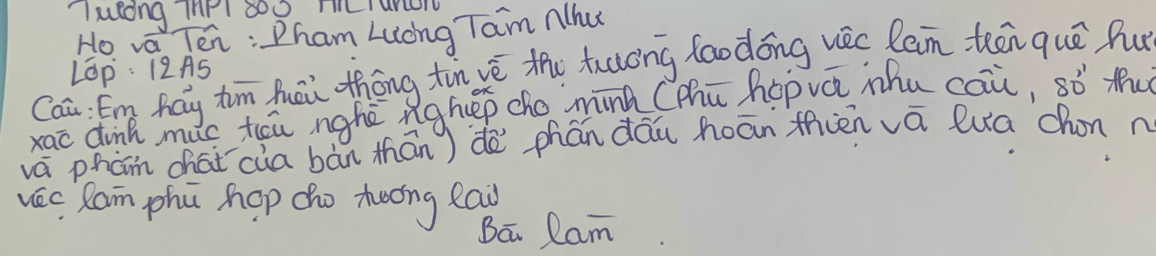 Trường THPT số 3 An Nhơn
Họ và Tên : Phạm Lương Tâm Như
Lớp : 12A5
Câu : Em hãy tìm hiểu thông tin về thị trường lao động việc làm trên quê
xác định mục tiêu nghề nghiệp cho mình (phù hợp với nhu cầu, sở
và phẩm chất của bản thân) để phấn đấu hoàn thiện và lựa chọn
việc làm phù hợp cho tương lai
Bài làm .